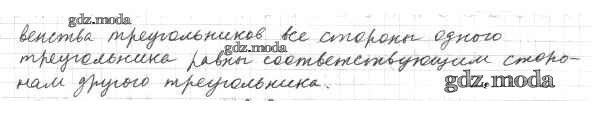 gdz.moda
венства треугольников все стороны одного
gdz.moda
треугольника равны соответствующим сторо-
нам другого треугольника.
gdz.moda